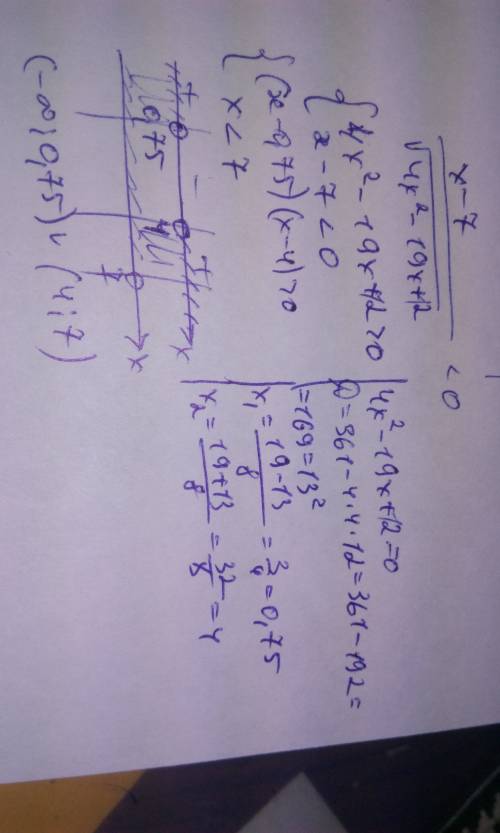 x-7
———————— < 0
√4x²-19x+12
{ 4x²-19x+12>0
{ x-7<0
{ (x-0,75)(x-4)>0
{ x<7
+ - + x
0,75 4
7 x
(-∞;0,75)∪(4;7)
4x²-19x+12=0
D=361-4·4·12=361-192=
=169=13²
x₁=(19-13)/8=3/4=0,75
x₂=(19+13)/8=32/8=4